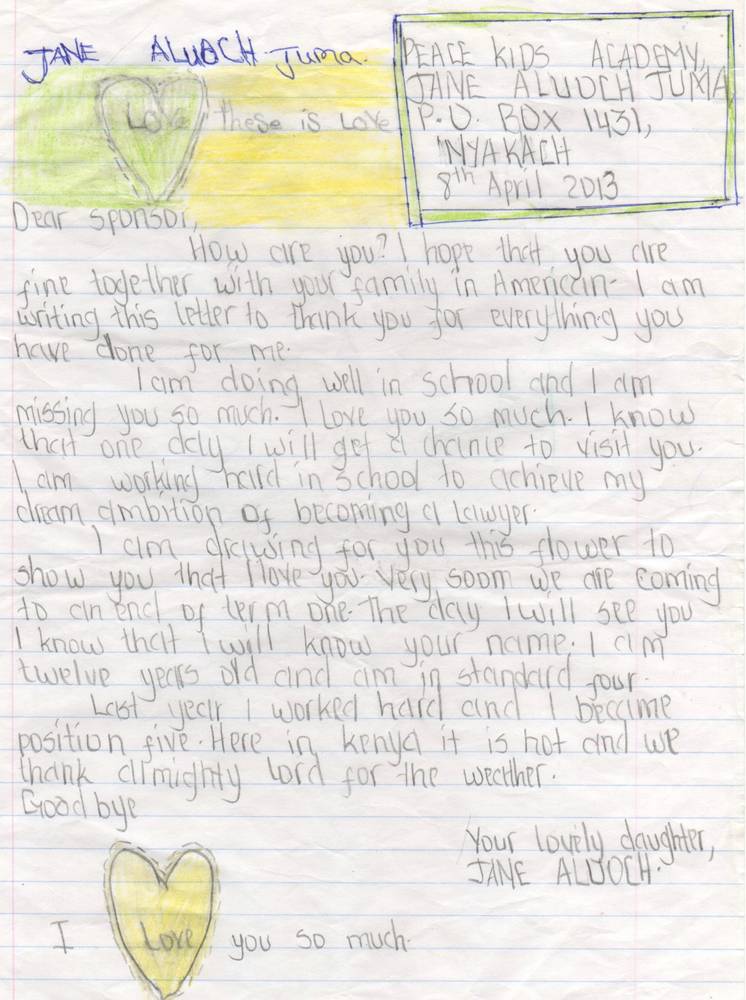 JANE ALUOCH Juma.
LOVE these is LOVE
PEACE KIDS ACADEMY,
JANE ALUOCH JUMA
P.O. BOX 1431,
NYAKACH
8th April 2013
Dear sponsor,
How are you? I hope that you are
fine together with your family in American. I am
writing this letter to thank you for everything you
have done for me.
I am doing well in school and I am
missing you so much. I Love you so much. I know
that one day I will get a chance to visit you.
I am working hard in school to achieve my
dream ambition of becoming a Lawyer.
I am drawing for you this flower to
show you that I love you. Very soom we are coming
to an end of term one. The day I will see you
I know that I will know your name. I am
twelve years old and am in standard four.
Last year I worked hard and I became
position five. Here in kenya it is hot and we
thank almighty lord for the weather.
Good bye
Your lovely daughter,
JANE ALUOCH.
I Love you so much.